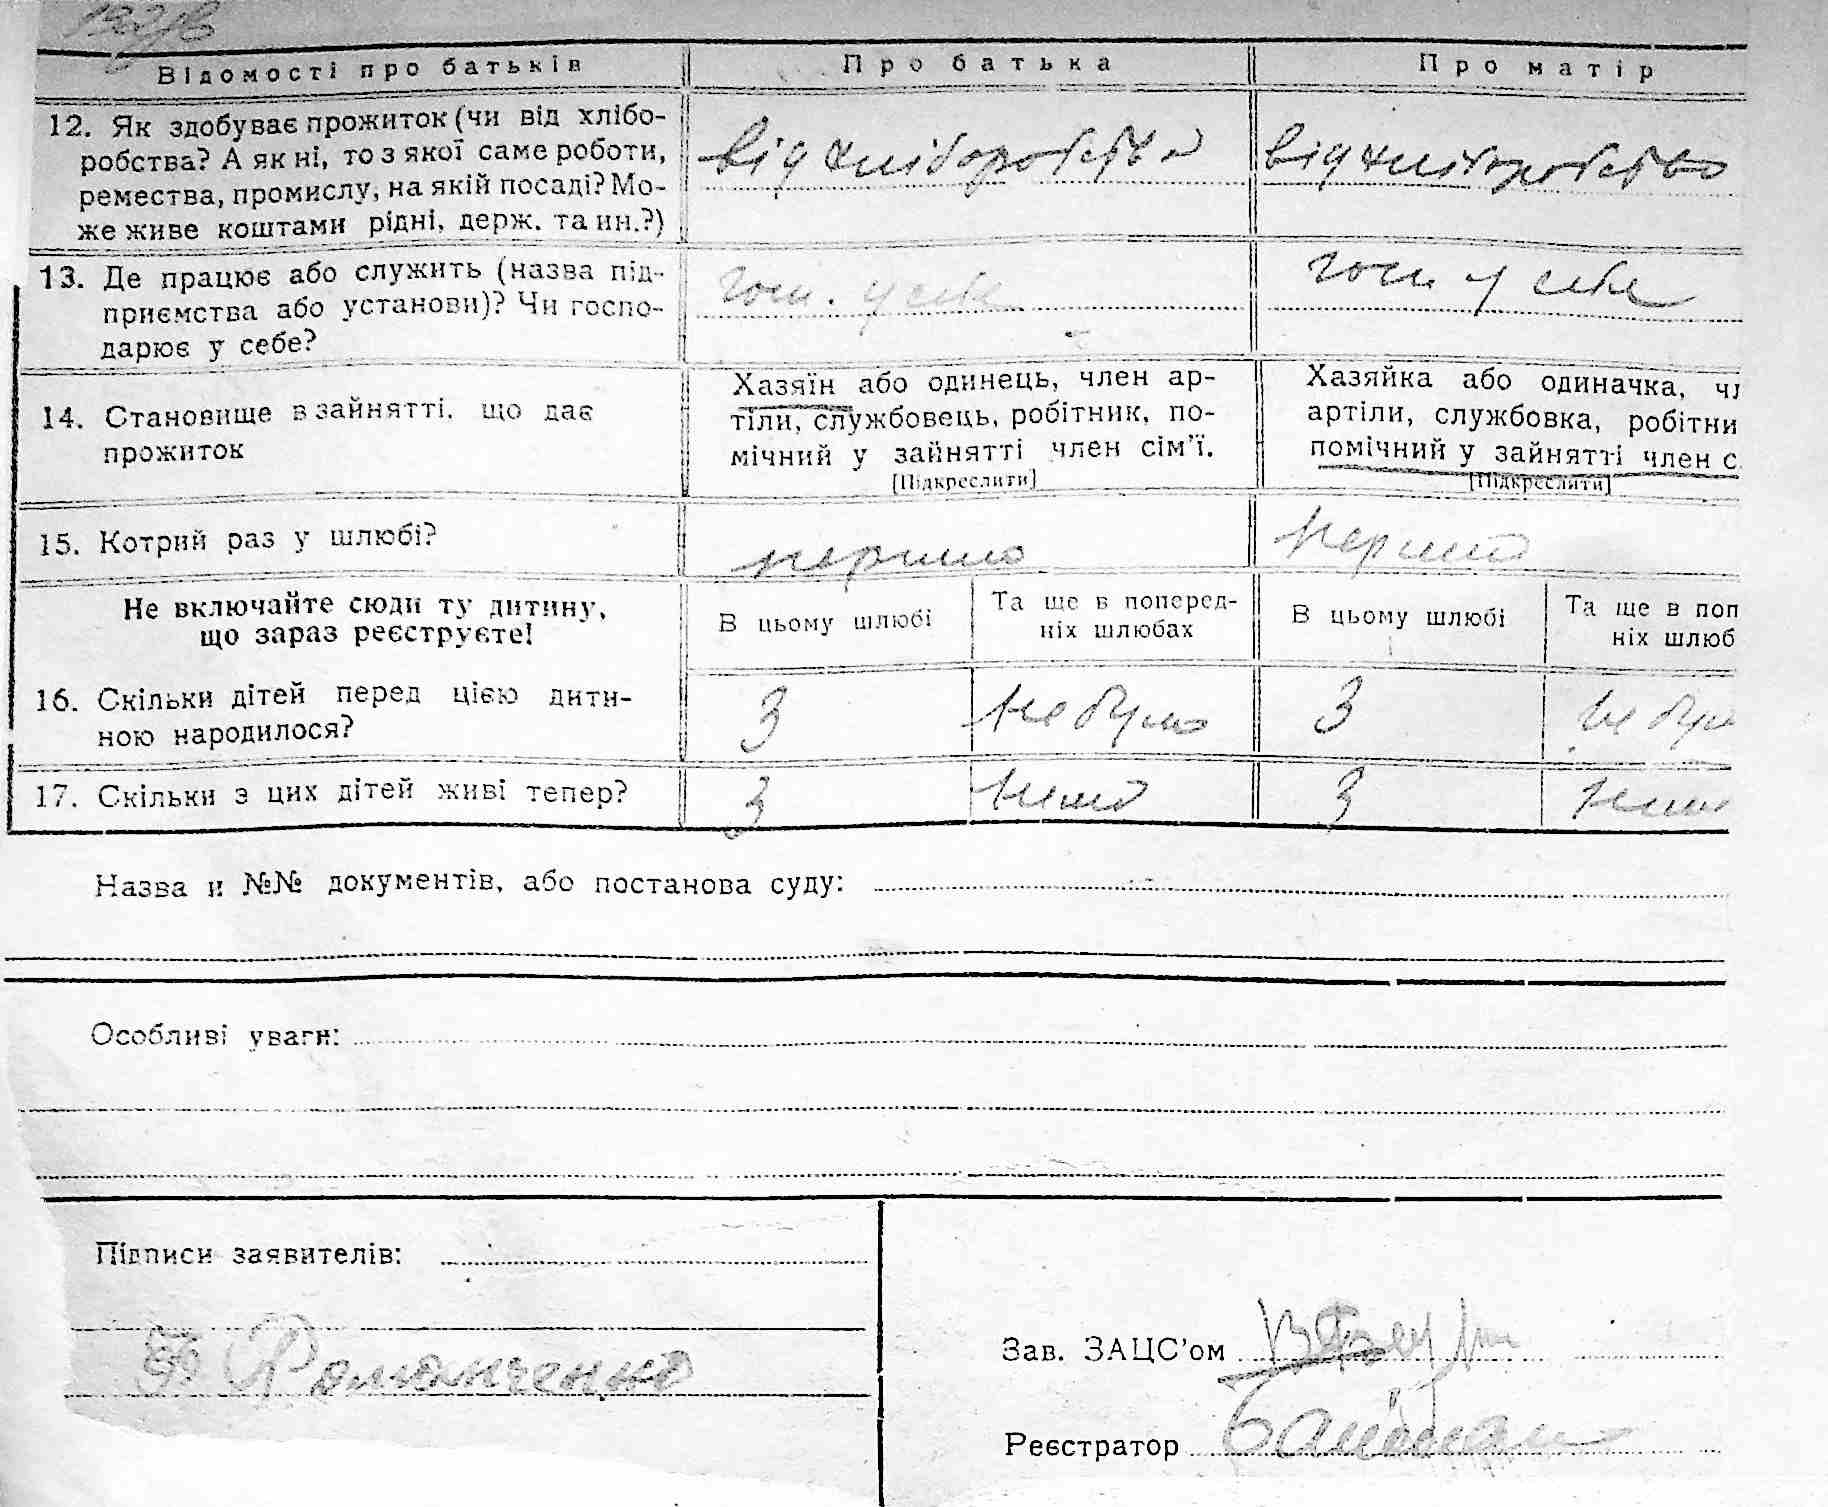 Відомості про батьків Про батька Про матір
12. Як здобуває прожиток (чи від хлібо-
робства? А як ні, то з якої саме роботи,
ремества, промислу, на якій посаді? Мо-
же живе коштами рідні, держ. та ин.?)
від хліборобства від хліборобство
13. Де працює або служить (назва під-
приємства або установи)? Чи госпо-
дарює у себе?
госп. у себе госп у себе
14. Становище в зайнятті, що дає
прожиток
Хазяїн або одинець, член ар-
тіли, службовець, робітник, по-
мічний у зайнятті член сім’ї.
[Підкреслити]
Хазяйка або одиначка, чл
артіли, службовка, робітни
помічний у зайнятті член с
[Підкреслити]
15. Котрий раз у шлюбі?
перший перший
Не включайте сюди ту дитину,
що зараз реєструєте!
В цьому шлюбі
Та ще в поперед-
ніх шлюбах
В цьому шлюбі
Та ще в поп
ніх шлюб
16. Скільки дітей перед цією дити-
ною народилося?
3 не було 3 не було
17. Скільки з цих дітей живі тепер?
3 3
Назва и №№ документів, або постанова суду:
Особливі уваги:
Підписи заявителів:
Романченко
Зав. ЗАЦС’ом
Реєстратор